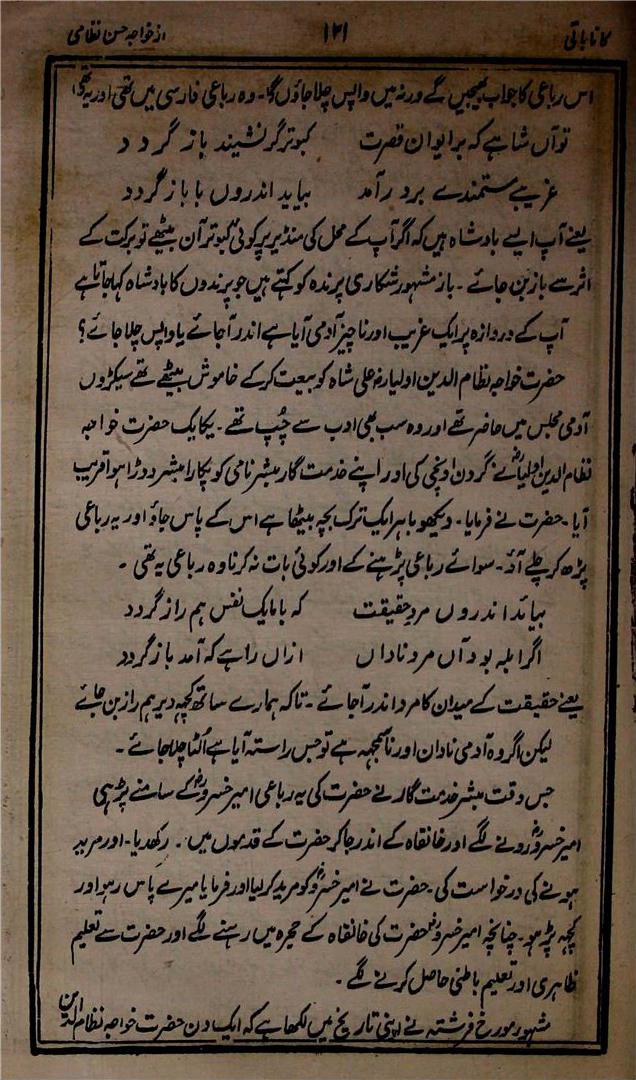 کانا باتی ۱۲۱ از خواجہ حسن نظامی
اس رباعی کا جواب بھیجیں گے ورنہ میں واپس چلا جاؤں گا۔ وہ رباعی فارسی میں تھی اور یہ تھی؛
تو آں شاہے کہ بر ایوان قصرت کبوتر گر نشیند باز گردد
غریبے مستمندے بر در آمد بیاید اندروں یا باز گردد
یعنے آپ ایسے بادشاہ ہیں کہ اگر آپ کے محل کی منڈیر پر کوئی کبوتر آن بیٹھے تو برکت کے
اثر سے باز بن جائے۔ باز مشہور شکاری پرندہ کو کہتے ہیں جو پرندوں کا بادشاہ کہا جاتا ہے
آپ کے دروازہ پر ایک غریب اور ناچیز آدمی آیا ہے اندر آجائے یا واپس چلا جائے؟
حضرت خواجہ نظام الدین اولیاءؒ علی شاہ کو بیعت کر کے خاموش بیٹھے تھے سیکڑوں
آدمی مجلس میں حاضر تھے اور وہ سب بھی ادب سے چُپ تھے۔ یکایک حضرت خواجہ
نظام الدین اولیاؒ نے گردن اونچی کی اور اپنے خدمت گار مبشر نامی کو پکارا مبشر دوڑا ہوا قریب
آیا۔ حضرت نے فرمایا۔ دیکھو باہر ایک ترک بچہ بیٹھا ہے اس کے پاس جاؤ اور یہ رباعی
پڑھ کر چلے آؤ۔ سوائے رباعی پڑہنے کے اور کوئی بات نہ کرنا وہ رباعی یہ تھی۔
بیاید اندروں مردِ حقیقت کہ با ما یک نفس ہم راز گردد
اگر ابلہ بود آں مرد ناداں ازاں راہے کہ آمد باز گردد
یعنے حقیقت کے میدان کا مرد اندر آجائے۔ تاکہ ہمارے ساتھ کچہہ دیر ہم راز بن جائے
لیکن اگر وہ آدمی نادان اور ناسمجہہ ہے تو جس راستہ آیا ہے اُلٹا چلا جائے۔
جس وقت مبشر خدمت گار نے حضرت کی یہ رباعی امیر خسروؒ کے سامنے پڑہی
امیر خسروؒ رونے لگے اور خانقاہ کے اندر جا کر حضرت کے قدموں میں۔ رکھدیا۔ اور مرید
ہونے کی درخواست کی۔ حضرت نے امیر خسروؒ کو مرید کر لیا اور فرمایا میرے پاس رہو اور
کچہہ پڑہو۔ چنانچہ امیر خسروؒ حضرت کی خانقاہ کے حجرہ میں رہنے لگے اور حضرت سے تعلیم
ظاہری اور تعلیم باطنی حاصل کرنے لگے۔
مشہور مورخ فرشتہ نے اپنی تاریخ میں لکھا ہے کہ ایک دن حضرت خواجہ نظام الدین